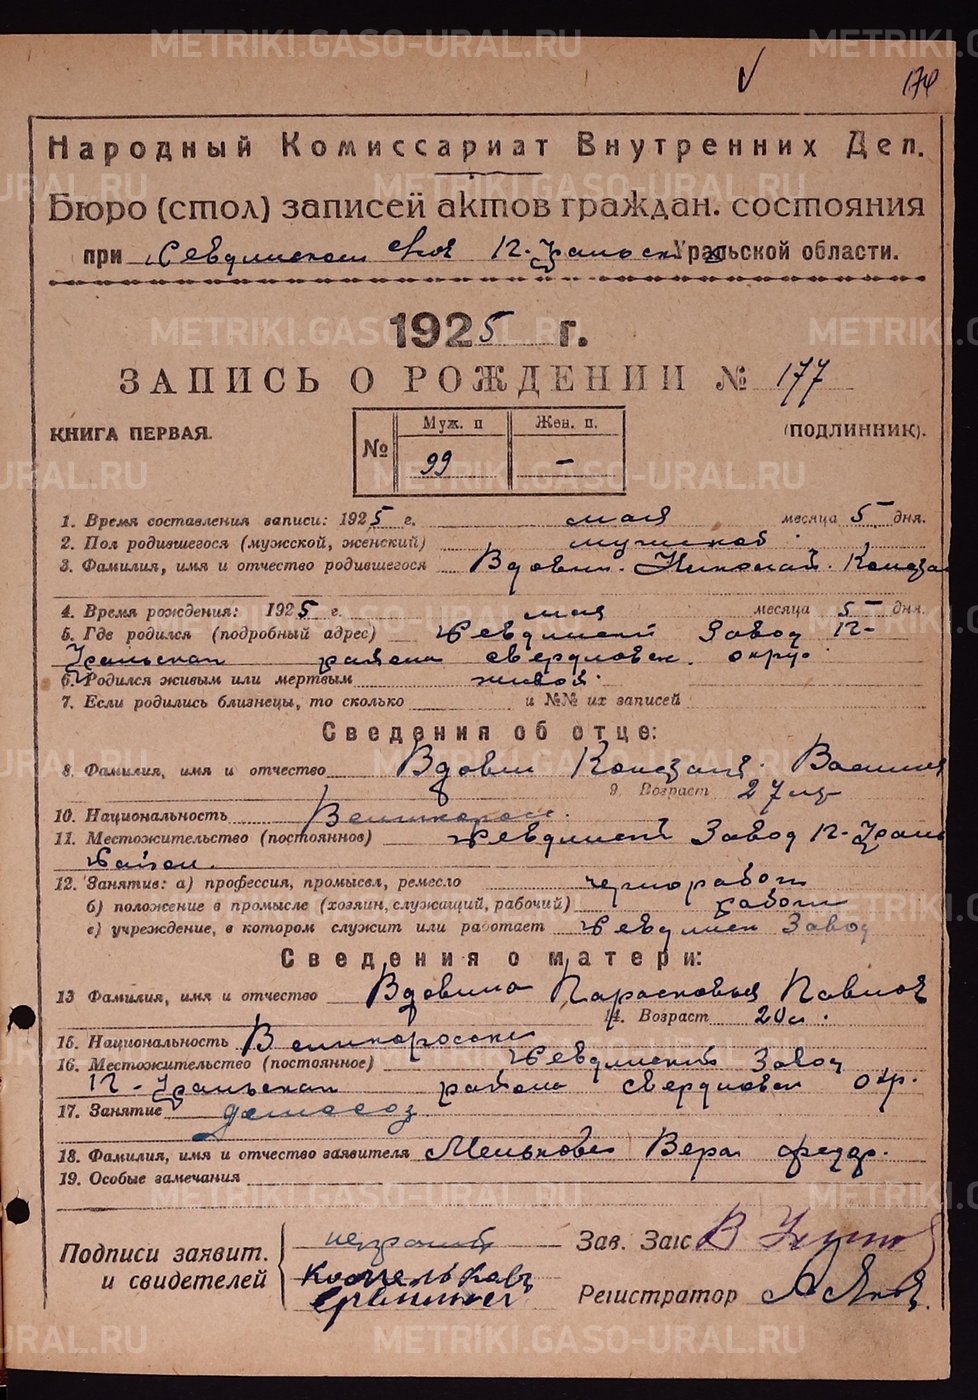 METRIKI.GASO-URAL.RU
174
Народный Комиссариат Внутренних Дел.
Бюро (стол) записей актов граждан. состояния
при Уральской области.
1925 г.
ЗАПИСЬ О РОЖДЕНИИ № 177
КНИГА ПЕРВАЯ. (ПОДЛИННИК).
№ Муж. п Жен. п.
99 –
1. Время составления записи: 1925 г. мая месяца 5 дня.
2. Пол родившегося (мужской, женский) мужской
3. Фамилия, имя и отчество родившегося Вдовин Николай Констан
4. Время рождения: 1925 г. мая месяца 5 дня.
5. Где родился (подробный адрес) Ревдинский Завод П-
Уральскаи района свердловск. окру.
6. Родился живым или мертвым живой.
7. Если родились близнецы, то сколько и №№ их записей
Сведения об отце:
8. Фамилия, имя и отчество Вдовин Констан. Василие
9. Возраст 27
10. Национальность Великоросс.
11. Местожительство (постоянное) Ревдинский Завод П-Ураль
Район.
12. Занятие: а) профессия, промысел, ремесло чернорабоч
б) положение в промысле (хозяин, служащий, рабочий) рабочи
в) учреждение, в котором служит или работает Ревдинск Завод
Сведения о матери:
13 Фамилия, имя и отчество Вдовина Парасковья Павлов
14. Возраст 20
15. Национальность Великоросска
16. Местожительство (постоянное) Ревдинский Завод
П-Уральскаи района свердловск окр.
17. Занятие домохоз
18. Фамилия, имя и отчество заявителя Вера федор.
19. Особые замечания
Подписи заявит. и свидетелей
неграмот
Зав. Загс В
Регистратор